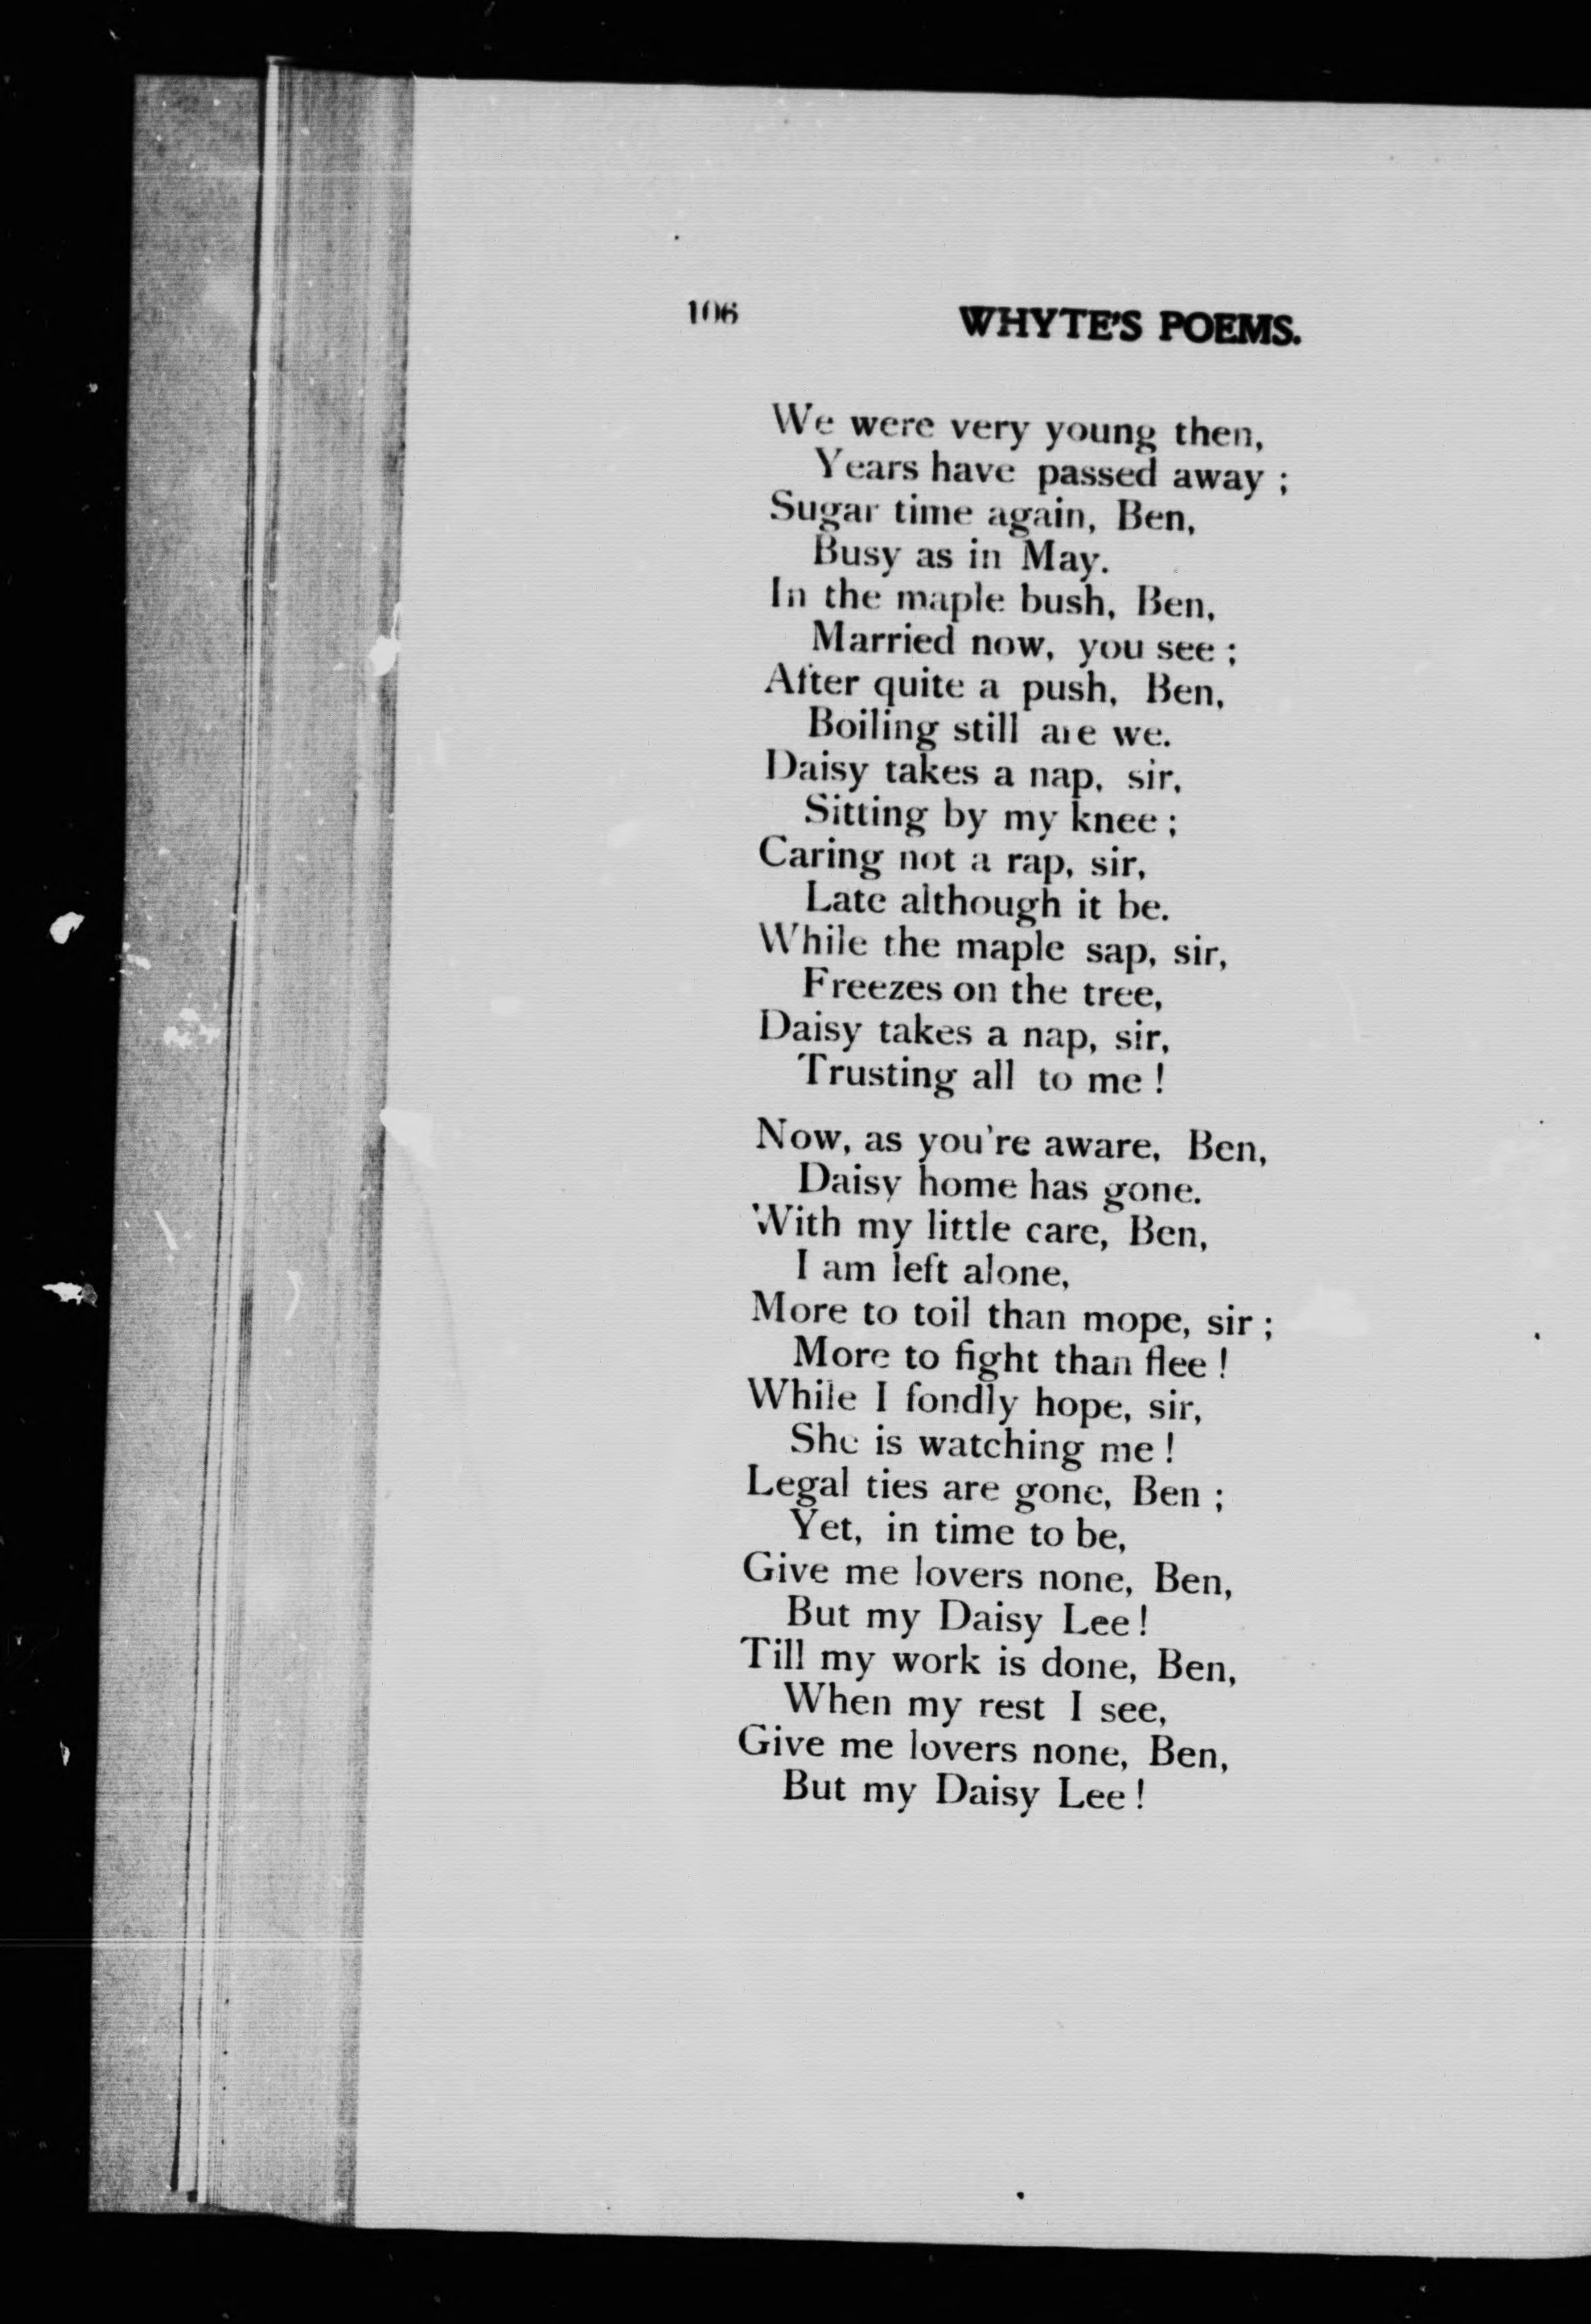 106 WHYTE'S POEMS.
We were very young then,
Years have passed away ;
Sugar time again, Ben,
Busy as in May.
In the maple bush, Ben,
Married now, you see ;
After quite a push, Ben,
Boiling still are we.
Daisy takes a nap, sir,
Sitting by my knee ;
Caring not a rap, sir,
Late although it be.
While the maple sap, sir,
Freezes on the tree,
Daisy takes a nap, sir,
Trusting all to me !
Now, as you're aware, Ben,
Daisy home has gone.
With my little care, Ben,
I am left alone,
More to toil than mope, sir ;
More to fight than flee !
While I fondly hope, sir,
She is watching me !
Legal ties are gone, Ben ;
Yet, in time to be,
Give me lovers none, Ben,
But my Daisy Lee !
Till my work is done, Ben,
When my rest I see,
Give me lovers none, Ben,
But my Daisy Lee !